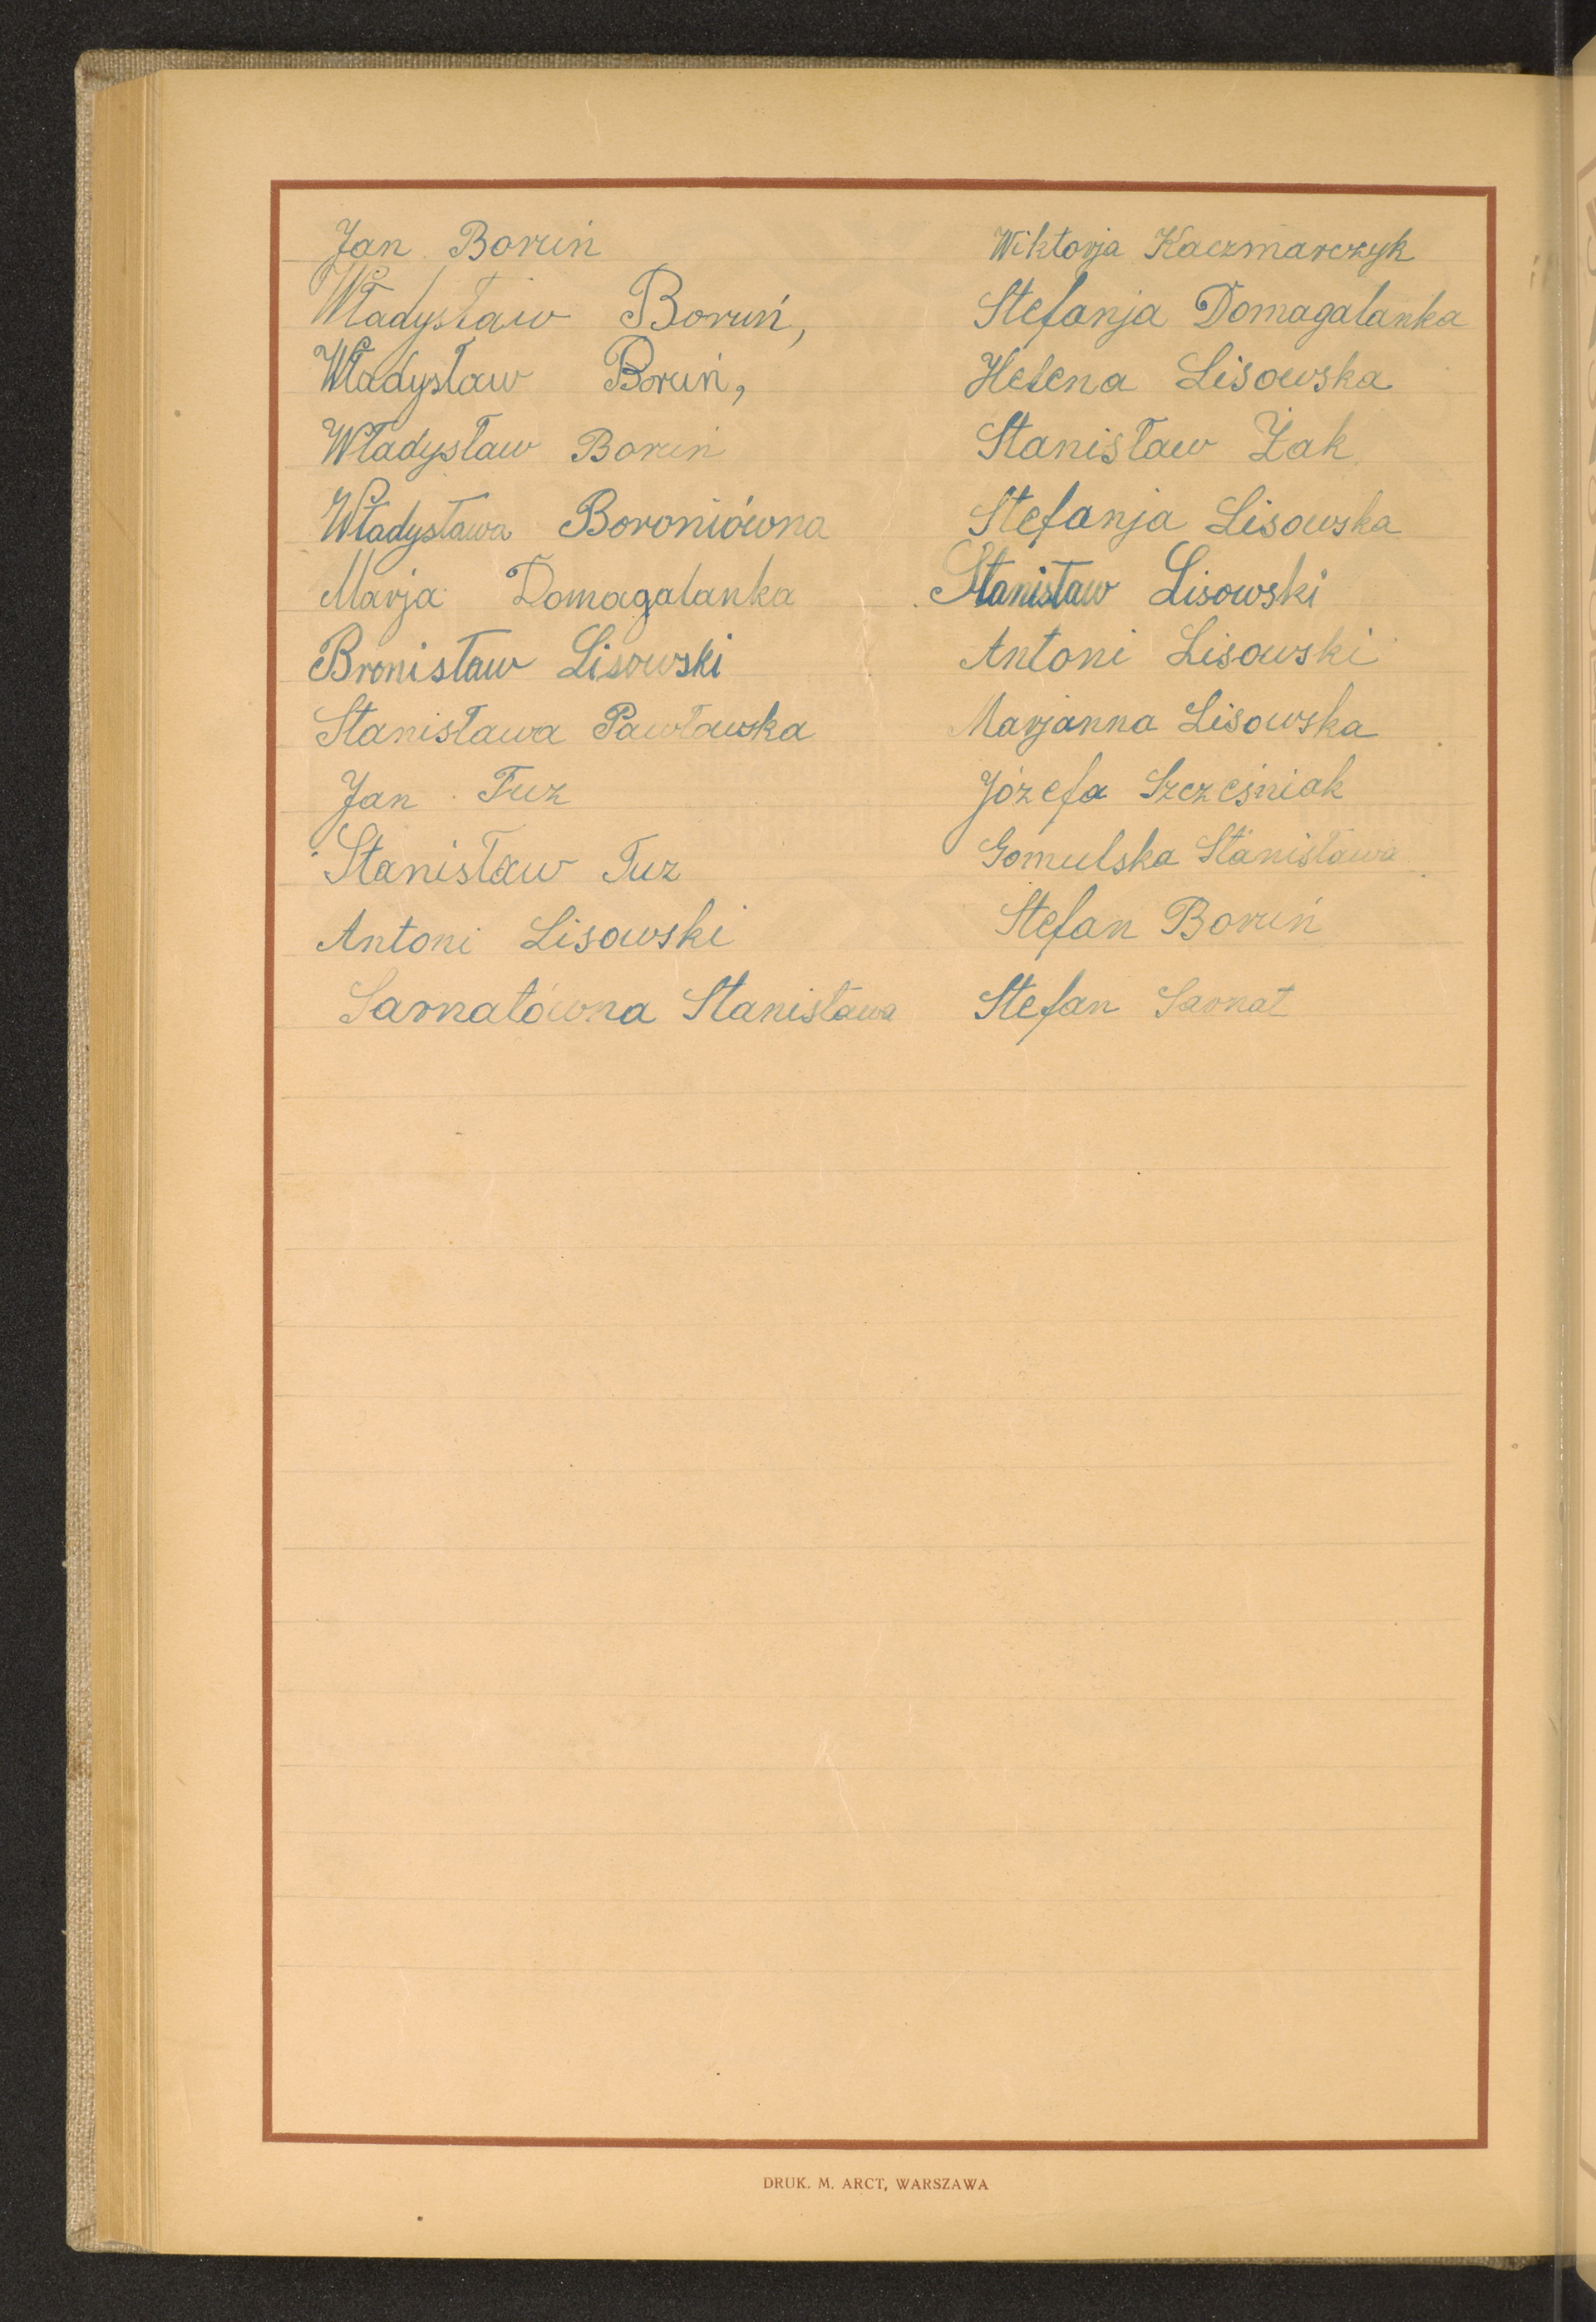 Jan Boruń
Władysław Boruń,
Władysław Boruń,
Władysław Boruń
Władysława Boroniówna
Marja Domagalanka
Bronisław Lisowski
Stanisława Pawłowska
Jan Tuz
Stanisław Tuz
Antoni Lisowski
Sarnatówna Stanisława
Wiktorja Kaczmarczyk
Stefanja Domagalanka
Helena Lisowska
Stanisław Żak
Stefanja Lisowska
Stanisław Lisowski
Antoni Lisowski
Marjanna Lisowska
Józefa Szcześniak
Gomulska Stanisława
Stefan Boruń
Stefan Sarnat
DRUK. M. ARCT, WARSZAWA